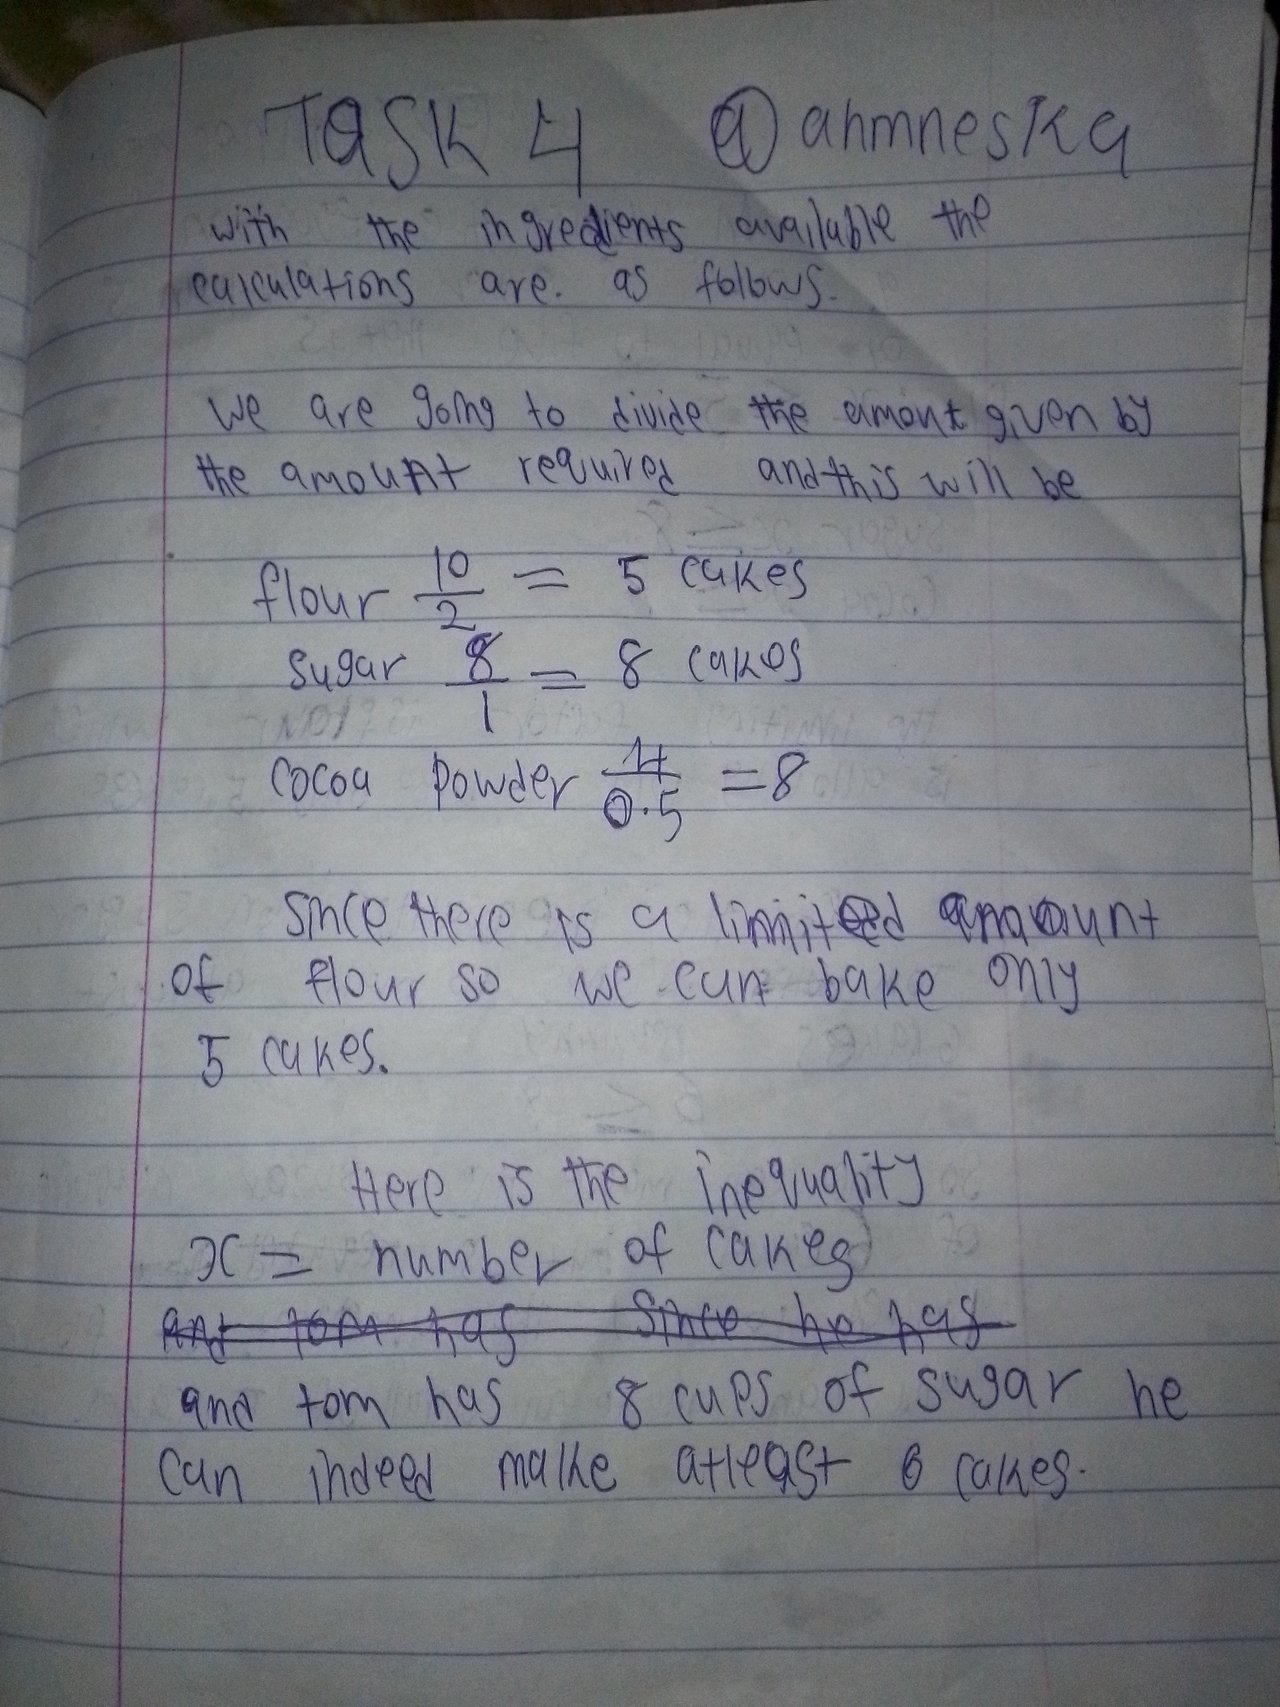 TASK 4 @ahmneska
with the ingredients available the
calculations are. as follows.
we are going to divide the amont given by
the amount required and this will be
flour 10/2 = 5 cakes
sugar 8/1 = 8 cakes
cocoa powder 4/0.5 = 8
Since there is a limited amount
of flour so we can bake only
5 cakes.
Here is the inequality
x = number of cakes
and tom has since he has
and tom has 8 cups of sugar he
can indeed make atleast 6 cakes.